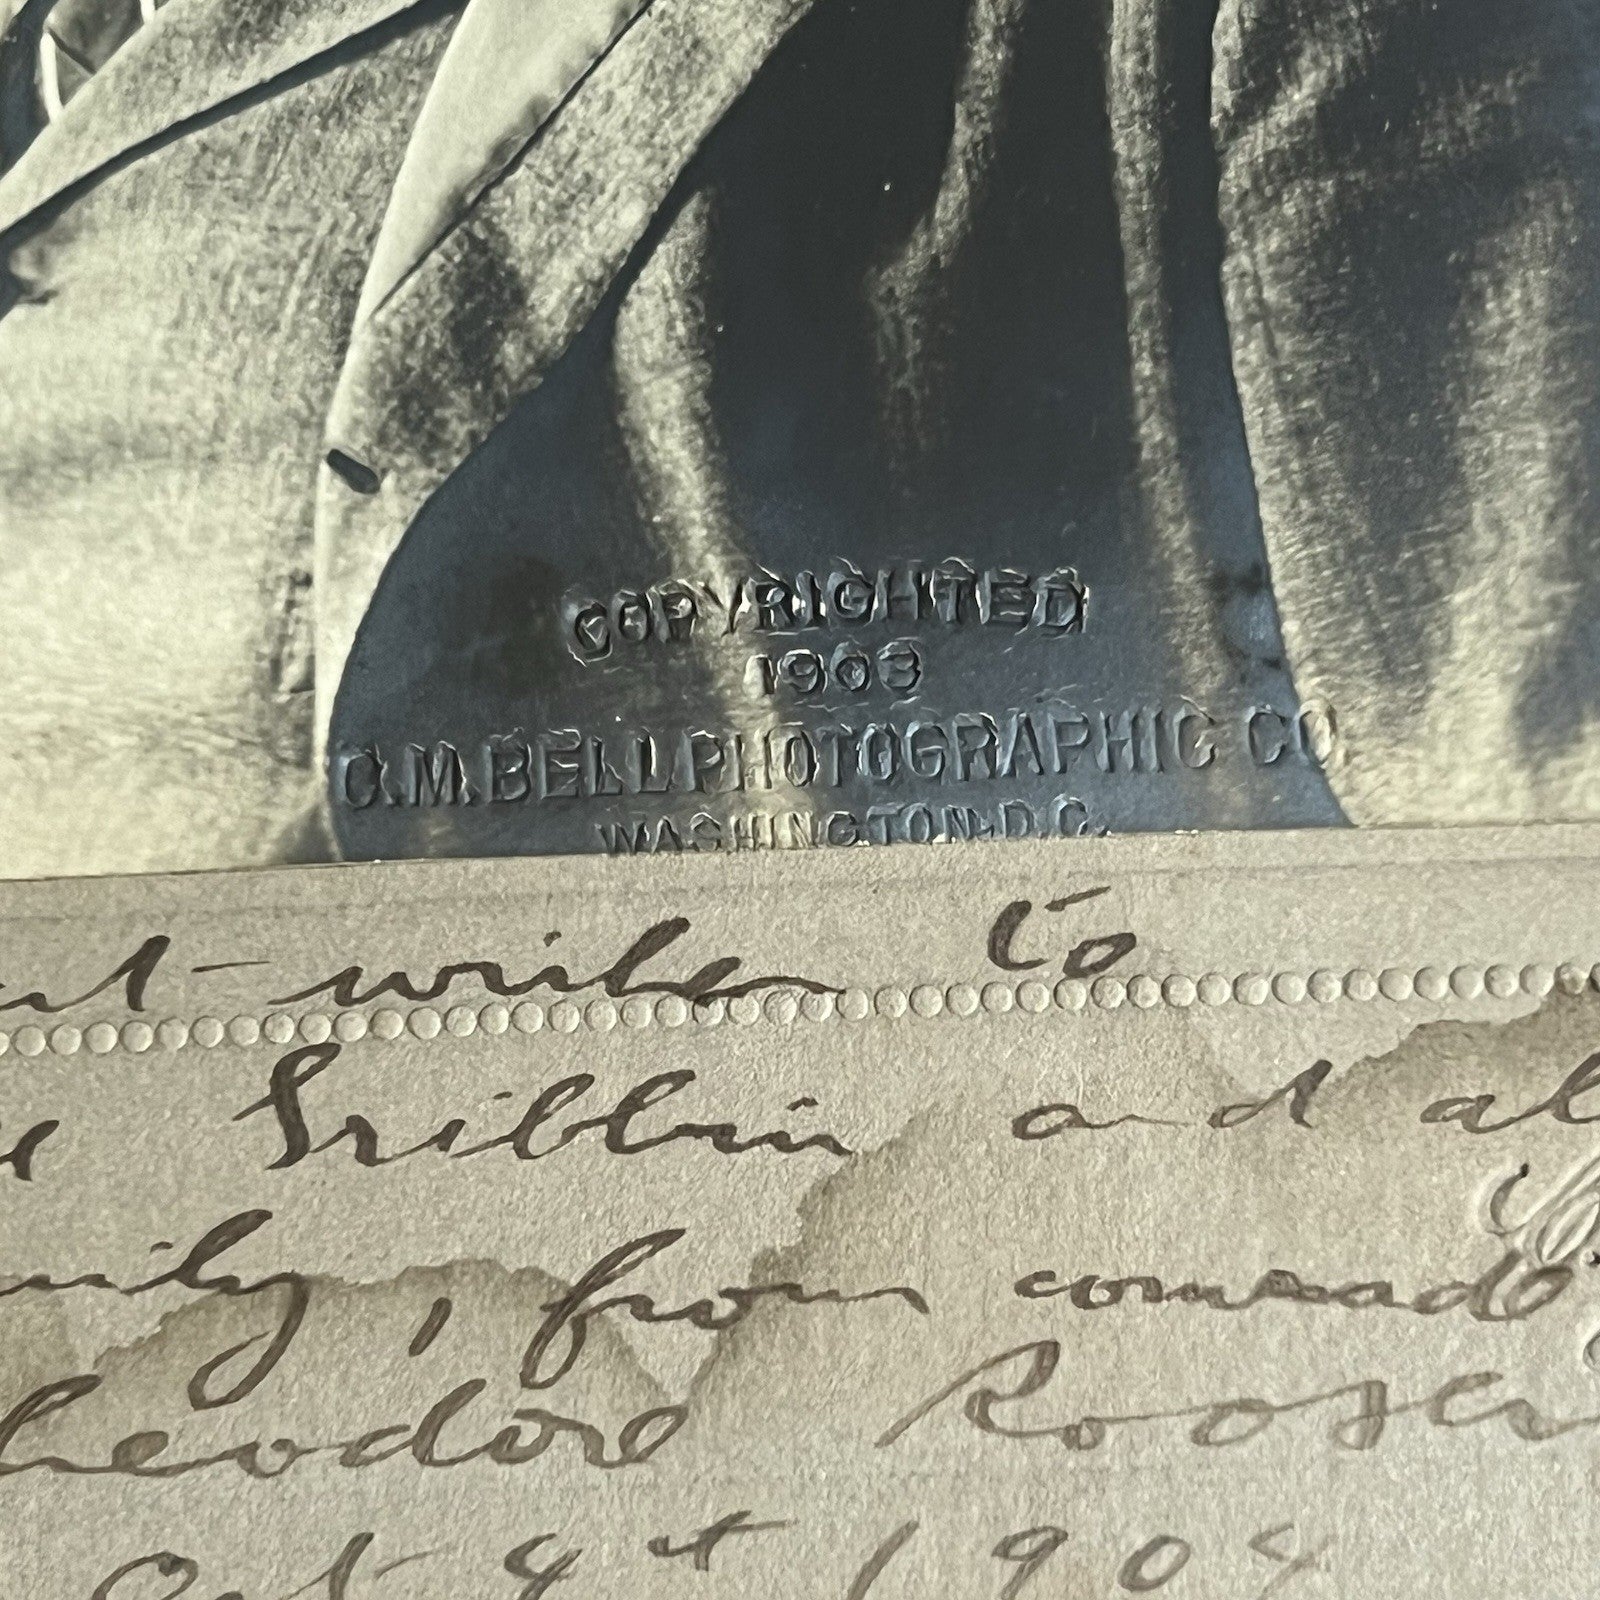 COPYRIGHTED
1903
C.M. BELL PHOTOGRAPHIC CO
WASHINGTON D.C.
to
Gribbin and al
ily, from comrade
heodore Roosev
Oct 8th 1904